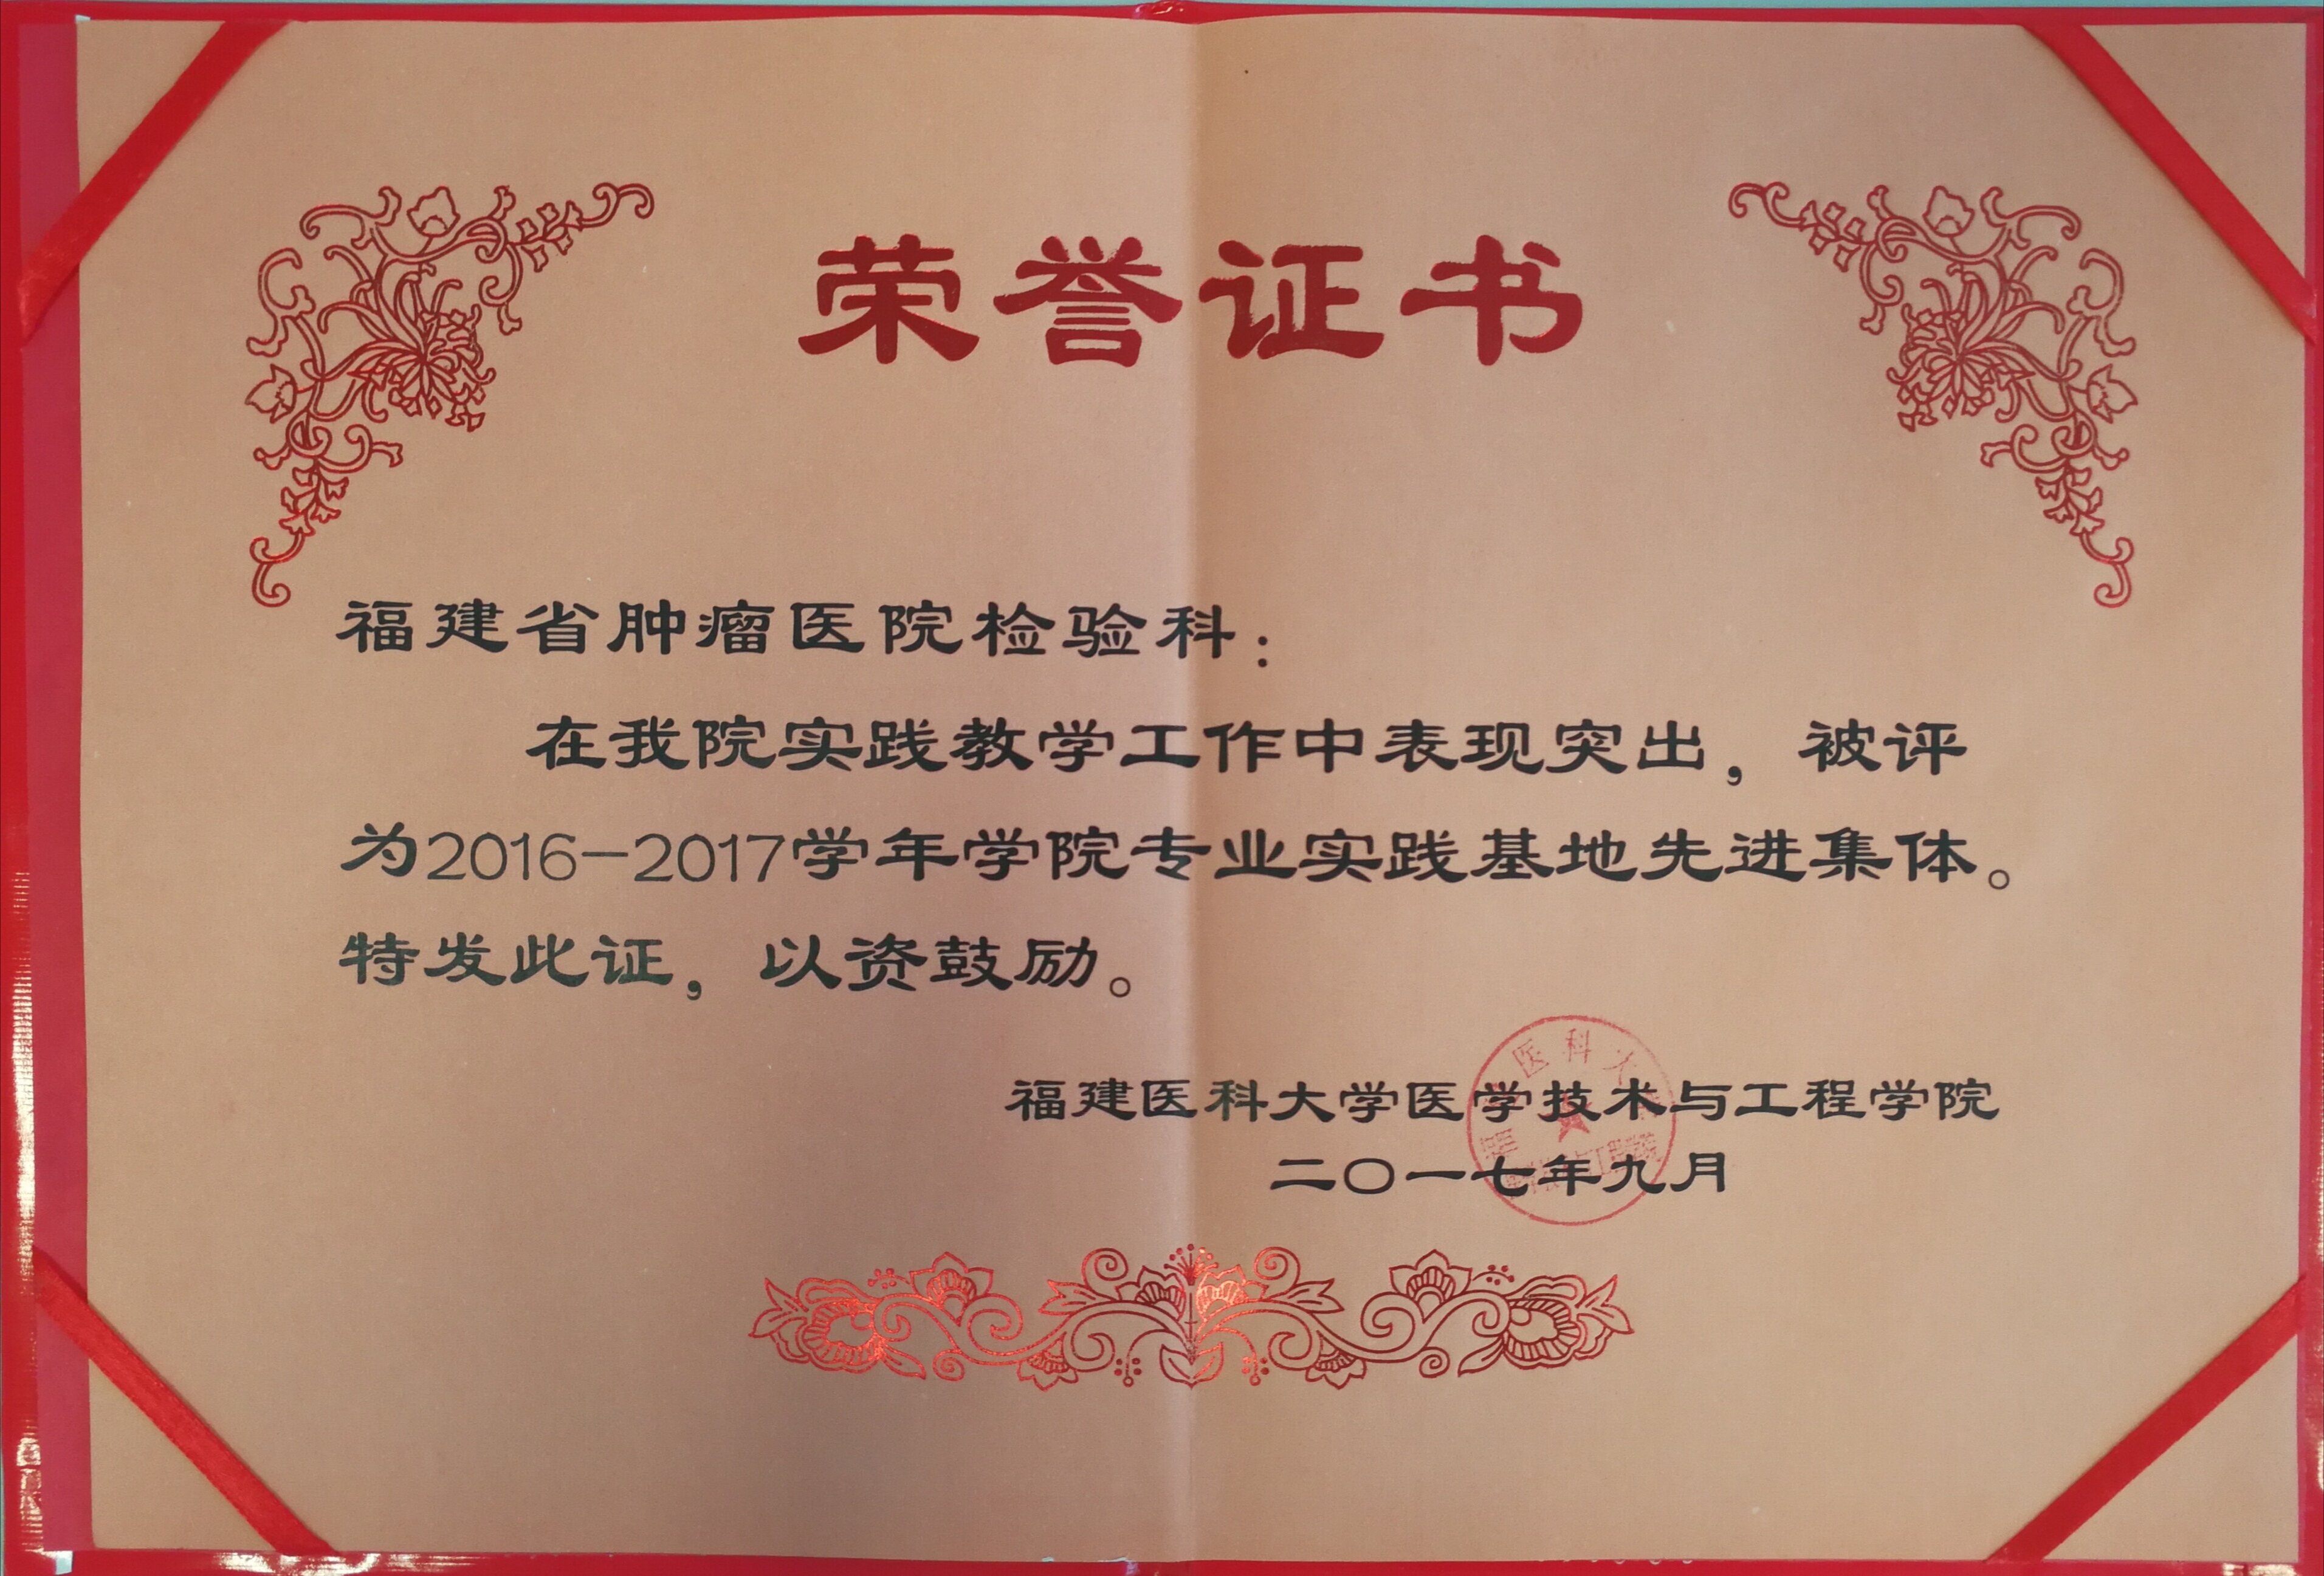 荣誉证书
福建省肿瘤医院检验科：
在我院实践教学工作中表现突出，被评
为2016-2017学年学院专业实践基地先进集体。
特发此证，以资鼓励。
福建医科大学医学技术与工程学院
二〇一七年九月
医科大